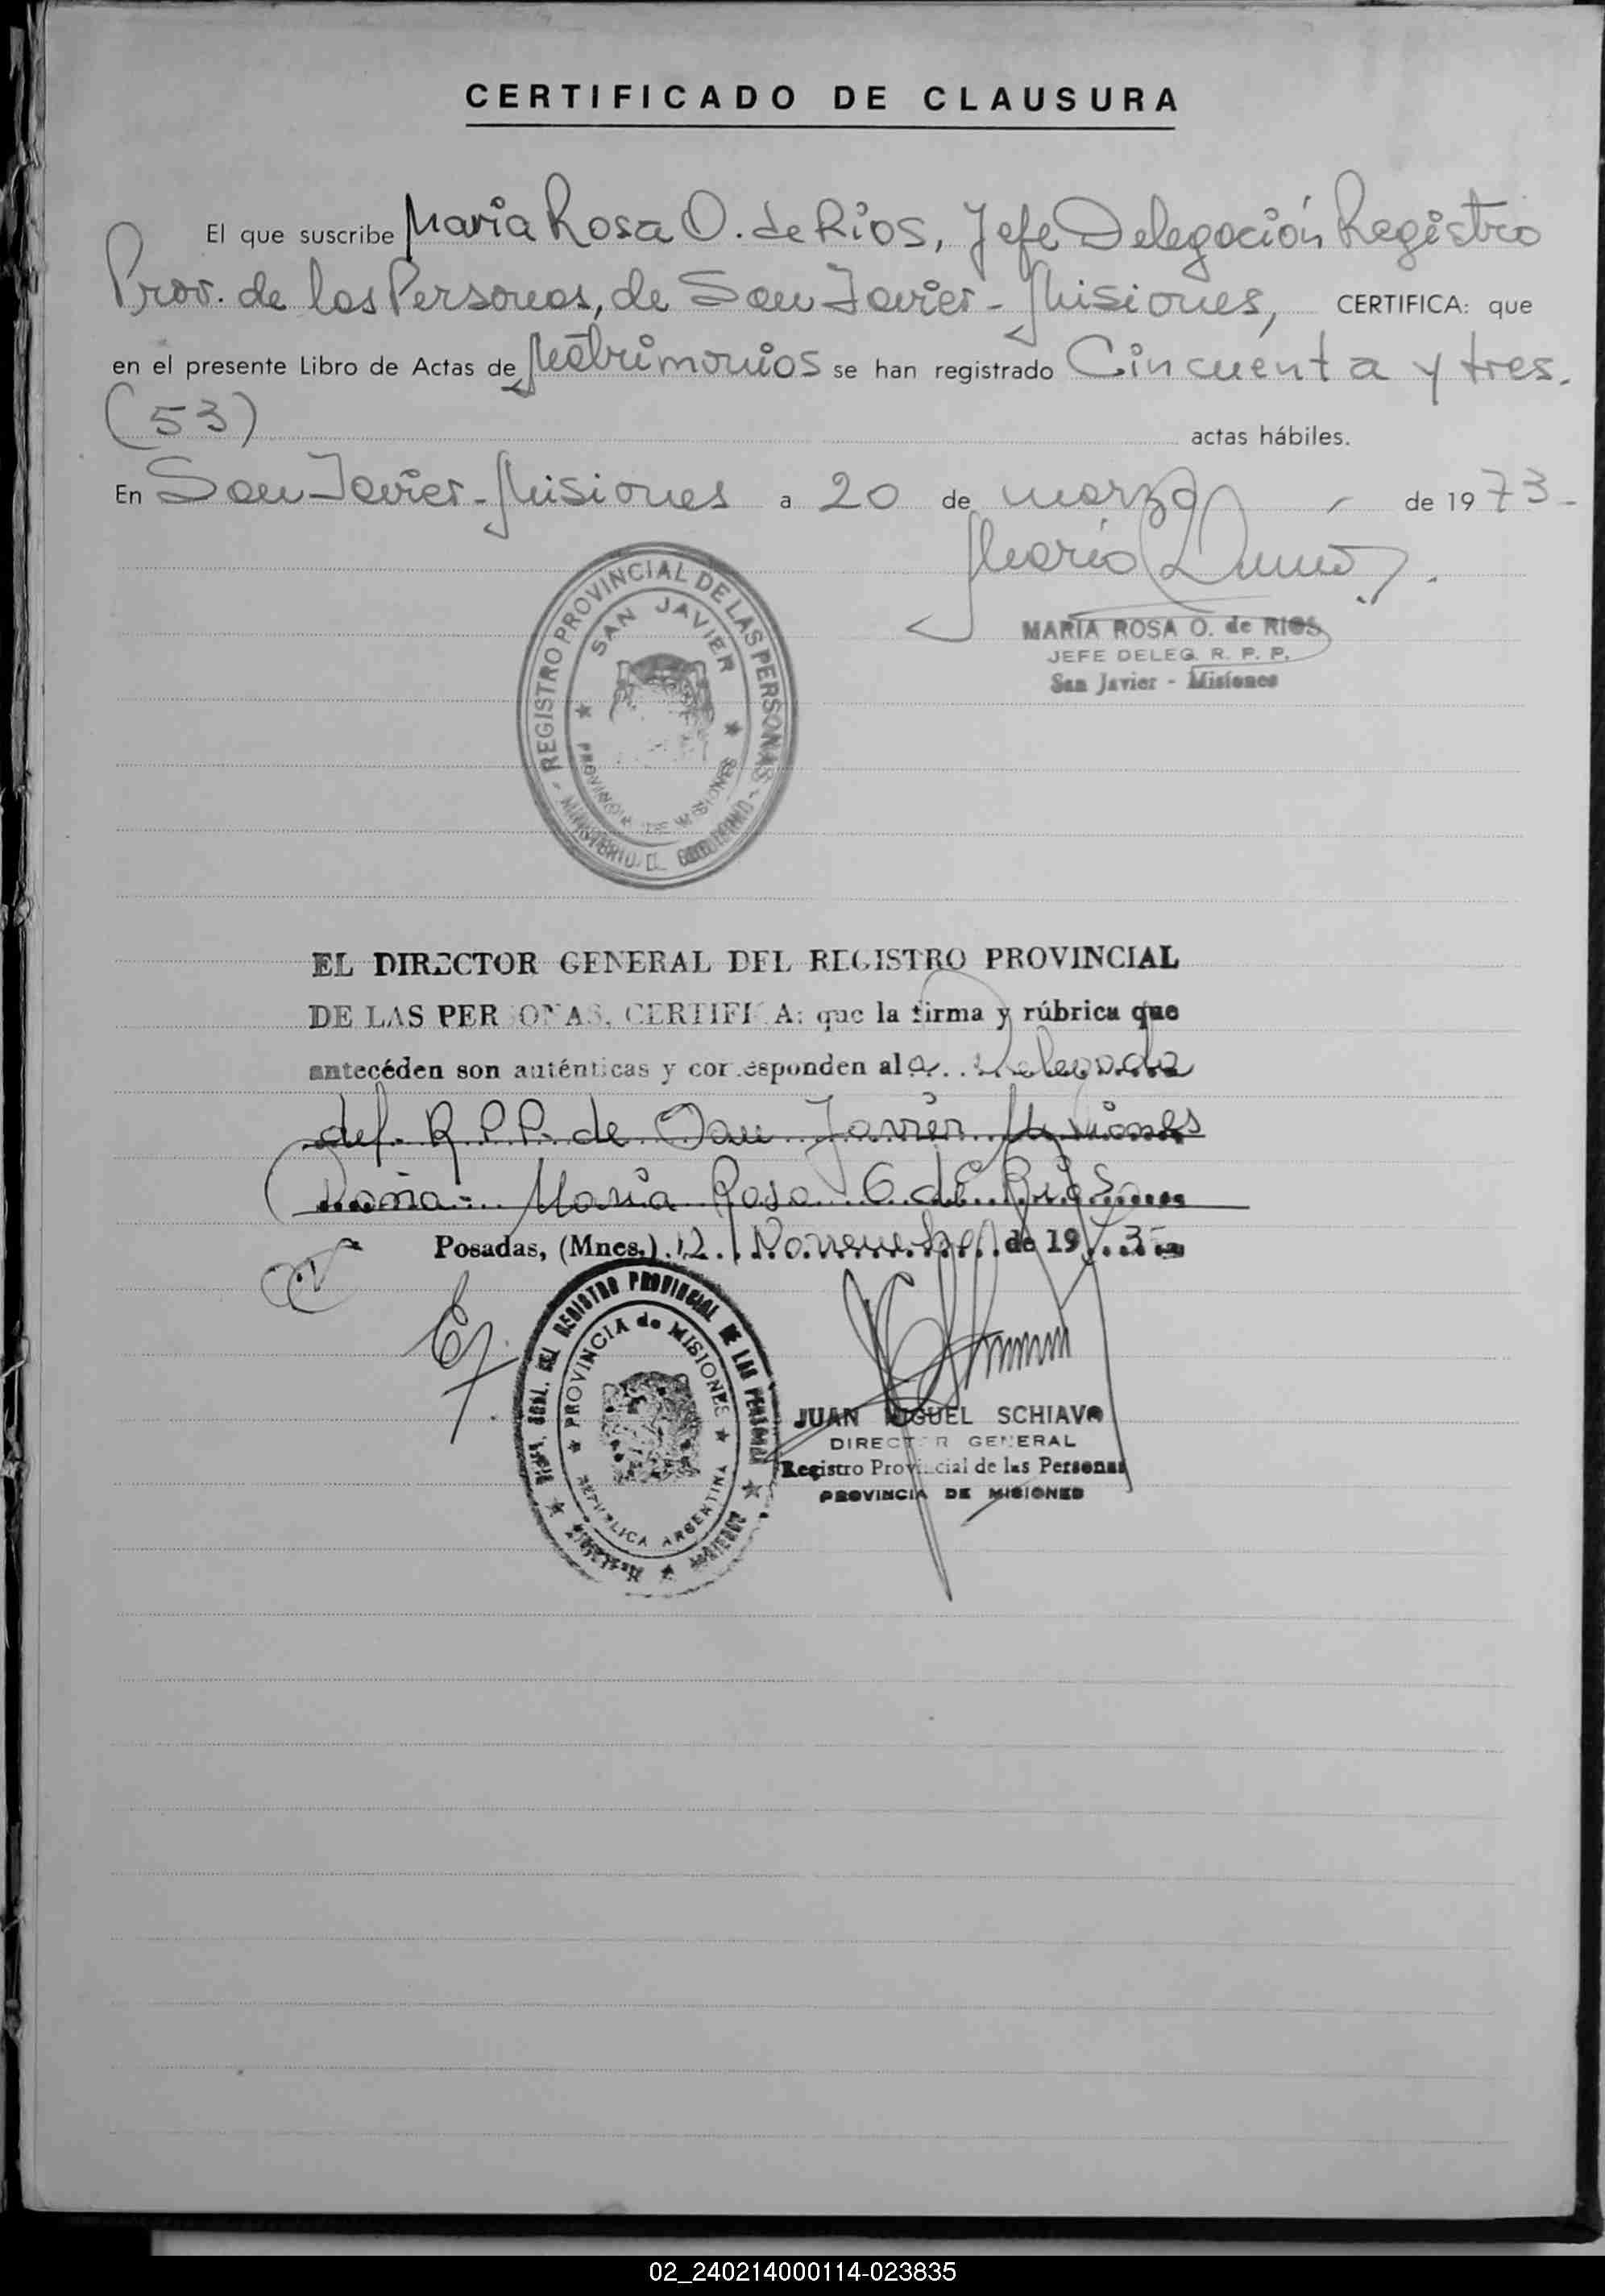 CERTIFICADO DE CLAUSURA
El que suscribe Maria Rosa O. de Rios, Jefe Delegación Registro
Prov. de las Personas, de San Javier - Misiones, CERTIFICA: que
en el presente Libro de Actas de Matrimonios se han registrado Cincuenta y tres.
(53) actas hábiles.
En San Javier - Misiones a 20 de marzo de 1973-
REGISTRO PROVINCIAL DE LAS PERSONAS
SAN JAVIER
PROVINCIA DE MISIONES
MARIA ROSA O. de RIOS
JEFE DELEG. R. P. P.
San Javier - Misiones
EL DIRECTOR GENERAL DEL REGISTRO PROVINCIAL
DE LAS PERSONAS, CERTIFICA: que la firma y rúbrica que
antecéden son auténticas y corresponden al a Delegada
del R.P.P. de San Javier Misiones
Doña: Maria Rosa O de Rios
Posadas, (Mnes.) 12 Noviembre de 1973
REGISTRO PROVINCIAL DE LAS PERSONAS
PROVINCIA de MISIONES
REPUBLICA ARGENTINA
JUAN MIGUEL SCHIAVO
DIRECTOR GENERAL
Registro Provincial de las Personas
PROVINCIA DE MISIONES
02_240214000114-023835